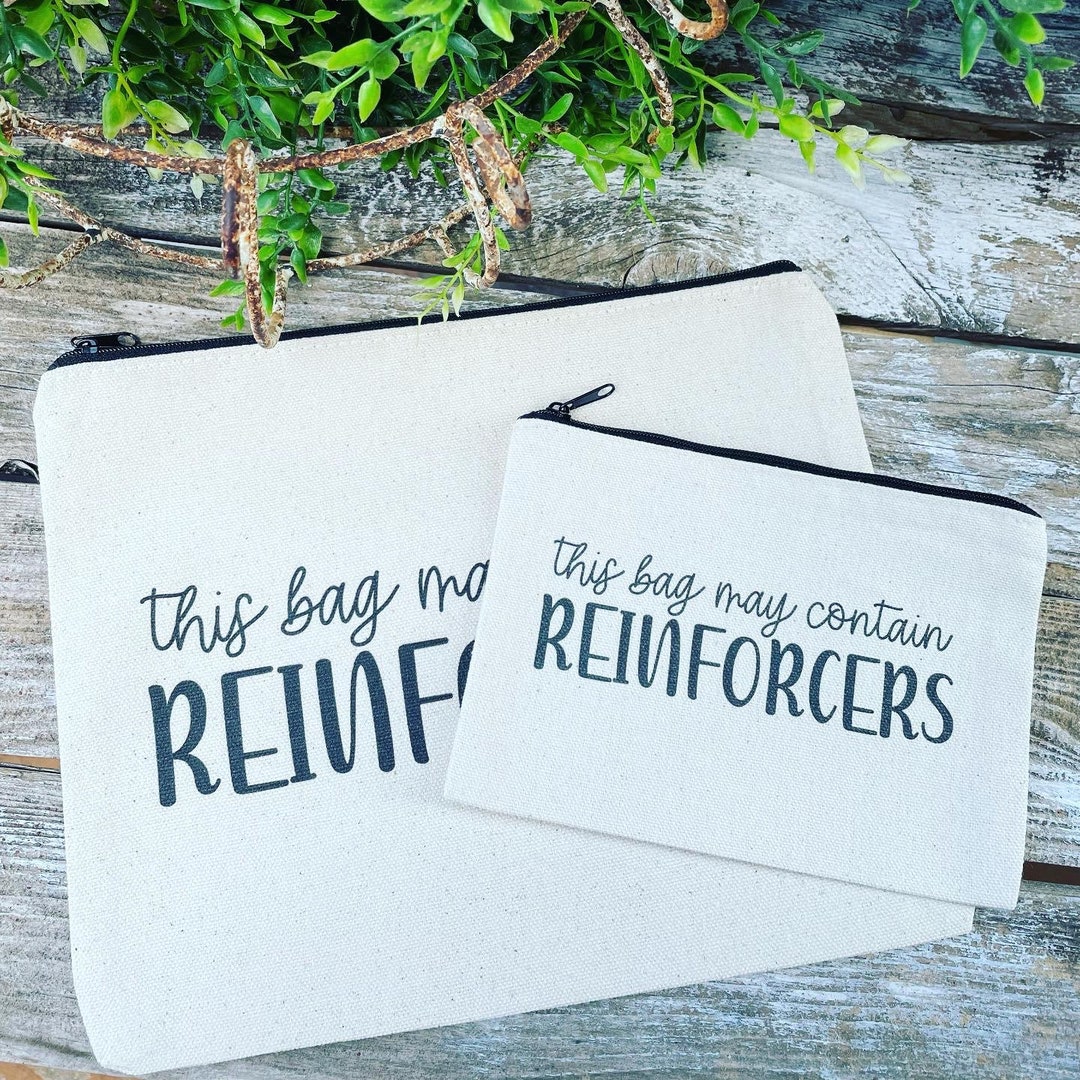 this bag ma
REINF
this bag may contain
REINFORCERS